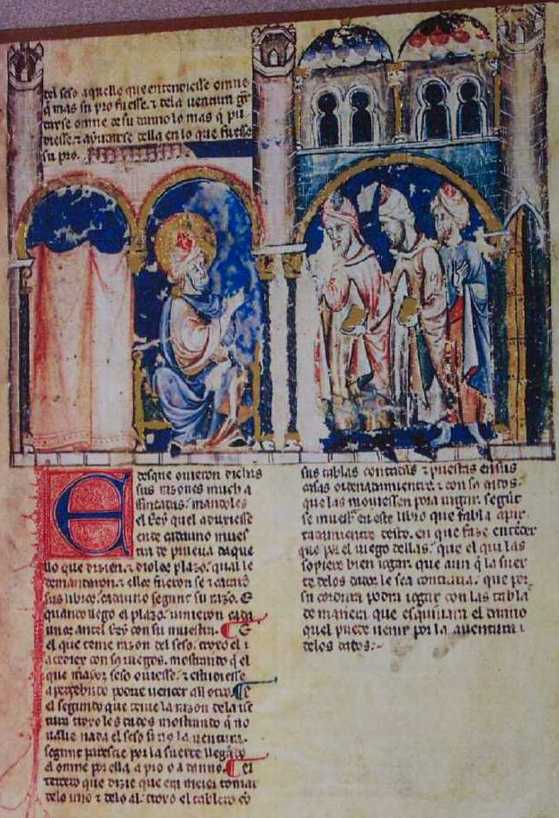 del seso aquello que entendiesse omne
q̃ mas su pro fuesse. ⁊ dela uentura gu
ardarse omne de su danno lo mas q̃ pu
diesse. ⁊ ayudarse della en lo que fuesse
su pro.
Edesque ouieron dichas
sus razones much a
ffincadas. mandoles
el Rey quel aduxiesse
cada uno mues
tra de prueua daque
llo que dizien. ⁊ dioles plazo qual le
demandaron. ⁊ ellos fueron se ⁊ cataro
sus libros. cadauno segunt su razõ. E
quando llego el plazo. uinieron cada
unos antel Rey con su muestra. E
el que tenie razon del seso. troxo el a
acedrex con sos iuegos. mostrando q̃ el
que mayor seso ouiesse. ⁊ estudiesse
aperçebudo podrie uencer all otro. E
el segundo que tenie la razon dela ue
tura troxo los dados mostrando q̃ no
ualie nada el seso si no la uentura.
segunt parescie por la suerte llegado
el omne por ella a pro o a danno. El
tercero que dizie que era meior tomar
delo uno ⁊ delo al. troxo el tablero cõ
sus tablas contadas ⁊ puestas en sus
casas ordenadamientre. ⁊ con sos dados
que las mouiessen pora iugar. segũt
se muestra en este libro que fabla apar
tadamientre desto. en que faze entẽder
que por el iuego dellas. que el qui las
sopiere bien iogar. que aun q̃ la suer
te delos dados le sea contraria. que por
su cordura podra iogar con las tablas
de manera que esquiuara el danno
quel puede uenir por la auentura
delos dados.